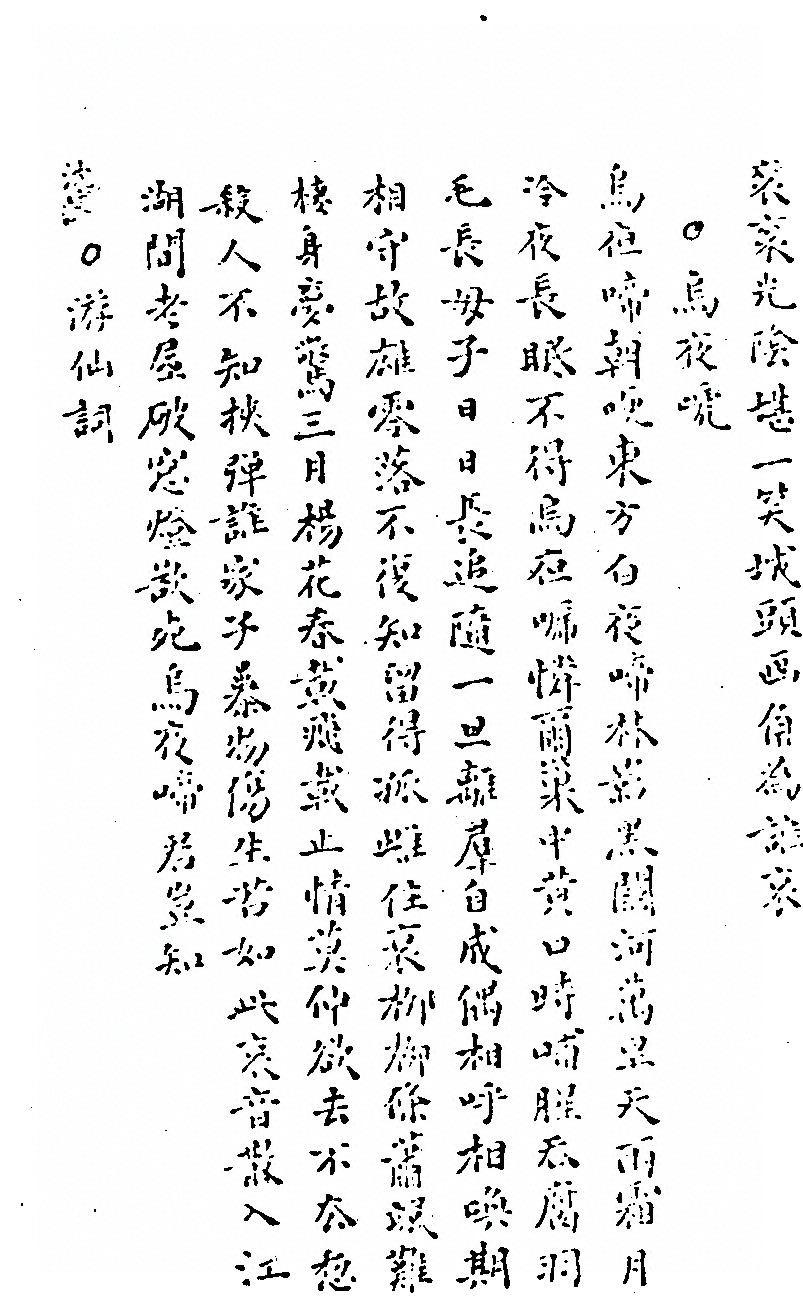 裘裘光陰堪一笑城頭画角為誰哀
○烏夜啼
烏夜啼朝曉東方白夜啼林影黑關河萬里天雨霜月
冷夜長眠不得烏夜啼憐爾巢中黄口時哺腥吞腐羽
毛長母子日日長追隨一旦離羣自成偶相呼相喚期
相守故雄零落不復知留得孤雌住衰柳柳條蕭艰難
棲身夢驚三月楊花春載飛載止情莫伸欲去不去愁
殺人不知挾彈誰家子暴物傷生苦如此哀音散入江
湖間老屋破窓燈欲死烏夜啼君豈知
○游仙詞